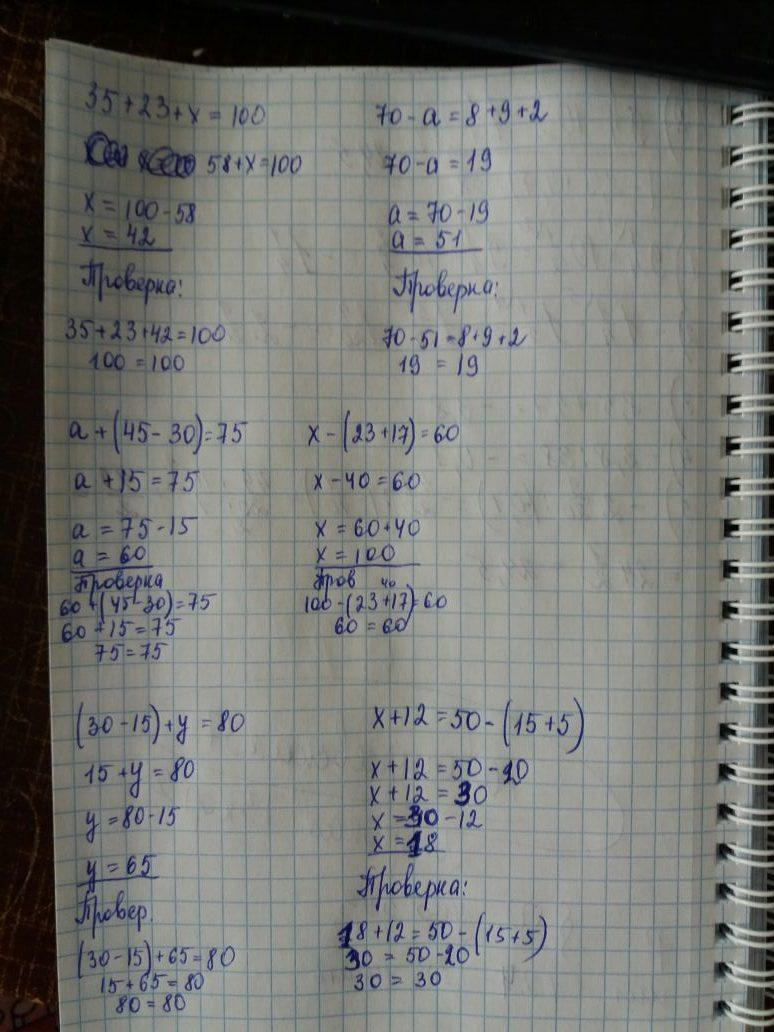 35+23+x=100
58+x=100
x=100-58
x=42
Проверка:
35+23+42=100
100=100
70-a=8+9+2
70-a=19
a=70-19
a=51
Проверка:
70-51=8+9+2
19=19
a+(45-30)=75
a+15=75
a=75-15
a=60
Проверка
60+(45-30)=75
60+15=75
75=75
x-(23+17)=60
x-40=60
x=60+40
x=100
Пров
40
100-(23+17)=60
60=60
(30-15)+y=80
15+y=80
y=80-15
y=65
Провер.
(30-15)+65=80
15+65=80
80=80
x+12=50-(15+5)
x+12=50-20
x+12=30
x=30-12
x=18
Проверка:
18+12=50-(15+5)
30=50-20
30=30